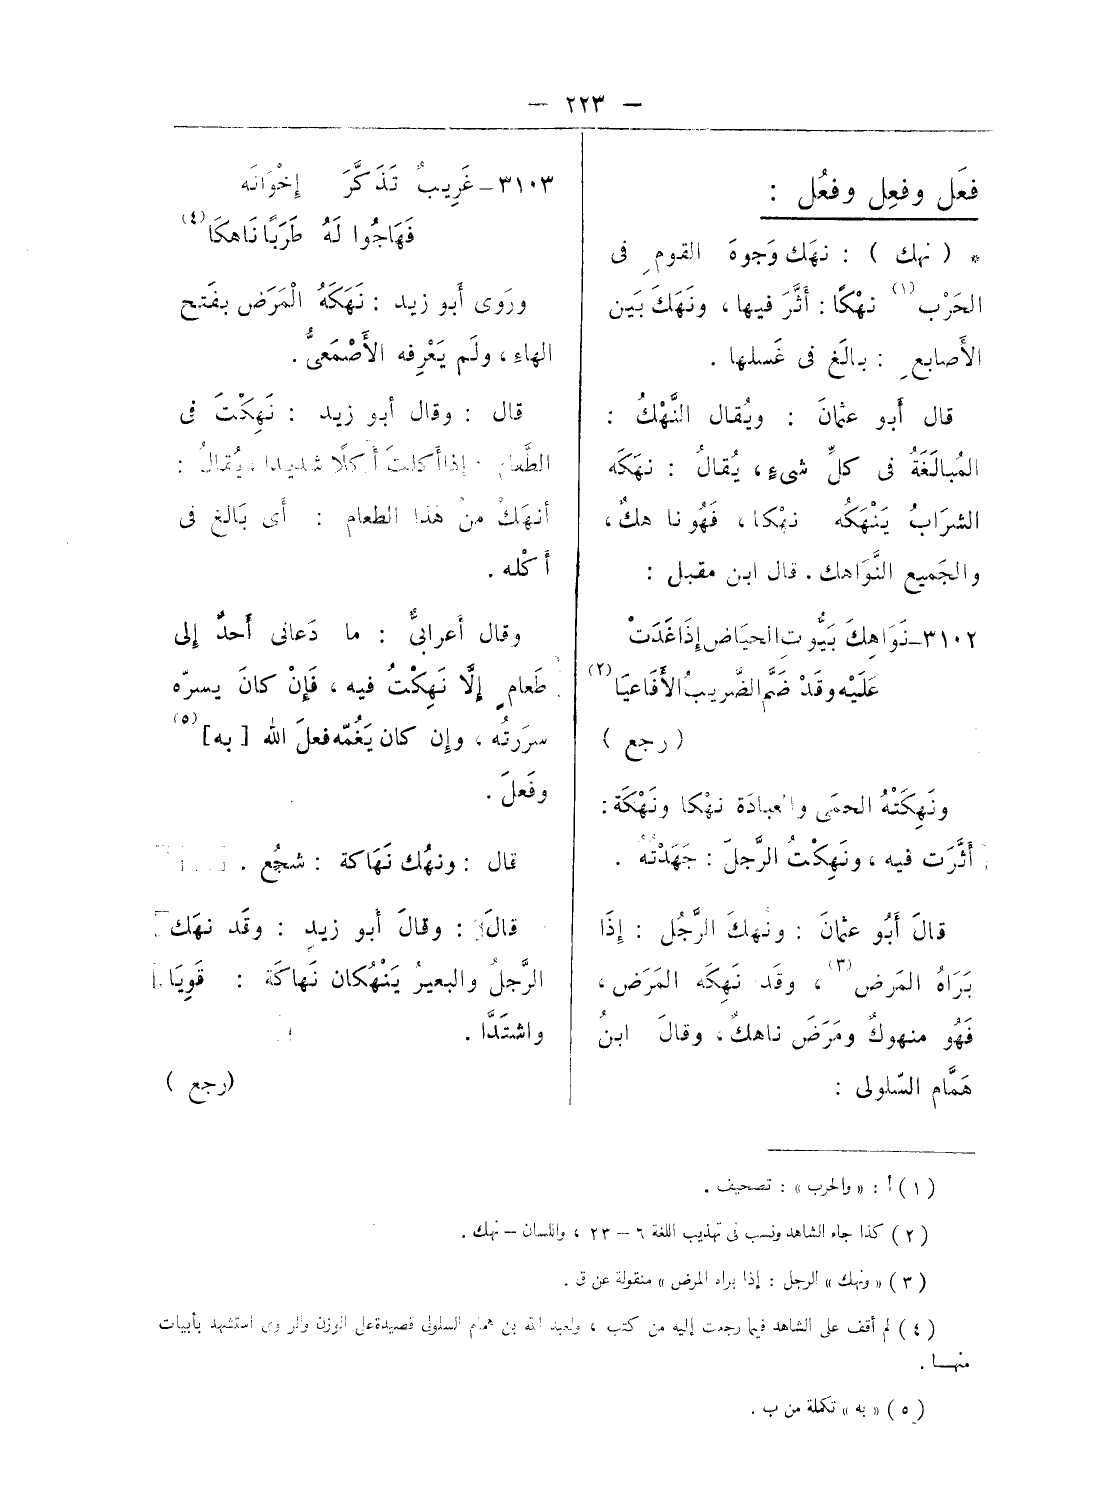 — ٢٢٣ —
فعَل وفعِل وفعُل :
* ( نهك ) : نهَك وَجوهَ القوم ِ فى
الحَرْب(١) نهْكًا : أثَّرَ فيها ، ونَهَكَ بَين
الأَصابع ِ : بالَغ فى غَسلها .
قال أَبو عثمانَ : ويُقال النَّهْكُ :
المُبالَغَةُ فى كلِّ شىءٍ ، يُقالُ : نهَكَه
الشرَابُ يَنْهَكُه نهْكا ، فَهُو ناهكٌ ،
والجَميع النَّوَاهك . قال ابن مقبل :
٣١٠٢ـ نَوَاهِكَ بَيُّوتِ الحيَاضِ إذَا غَدَتْ
عَلَيْه وقَدْ ضَمَّ الضَّريبُ الأَفَاعيَا(٢)
( رجع )
ونَهِكَتْهُ الحمَى والعبادَة نهْكا ونَهْكَة :
أَثَّرَت فيه ، ونَهِكْتُ الرَّجلَ : جَهَدْتُهُ .
قالَ أَبُو عثمانَ : ونهكَ الرَّجُل : إذَا
بَرَاهُ المَرَض(٣) ، وقَد نَهِكَه المَرَض ،
فَهُو منهوكٌ ومَرَضَ ناهكٌ ، وقالَ ابنُ
هَمَّام السّلولى :
٣١٠٣ـ غَرِيبٌ تَذَكَّرَ إخْوَانَه
فَهَاجُوا لَهُ طَرَبًا نَاهكَا(٤)
ورَوَى أَبو زيد : نَهَكَهُ الْمَرَض بفَتح
الهاءِ ، ولَم يَعْرِفه الأَصْمَعىُّ .
قال : وقال أبو زيد : نَهِكْتَ فى
الطَّعام : إذا أَكلتَ أَكلًا شديدا ، يُقالُ :
أنهَكْ منْ هَذا الطعام : أَى بَالغ فى
أَكْله .
وقال أَعرابىٌّ : ما دَعانى أَحدٌ إلى
طَعامٍ إلَّا نَهِكْتُ فيه ، فَإنْ كانَ يسرّه
سرَرتُه ، وإن كان يَغُمّه فعلَ الله [ به ](٥)
وفَعلَ .
قال : ونهُك نَهَاكة : شجُع .
قالَ : وقالَ أبو زيدِ : وقَد نهَك
الرَّجلُ والبعيرُ يَنْهُكان نَهاكَة : قَويَا
واشتَدَّا .
(رجع )
( ١ ) أ : « والحرب » : تصحيف .
( ٢ ) كذا جاء الشاهد ونسب فى تهذيب اللغة ٦ – ٢٣ ، واللسان – نهك .
( ٣ ) « ونهك » الرجل : إذا براه المرض » منقولة عن ق .
( ٤ ) لم أقف على الشاهد فيما رجعت إليه من كتب ، ولعبد الله بن همام السلولى قصيدة على الوزن والروى استشهد بأبيات
منهـا .
( ٥ ) « به » تكملة من ب .